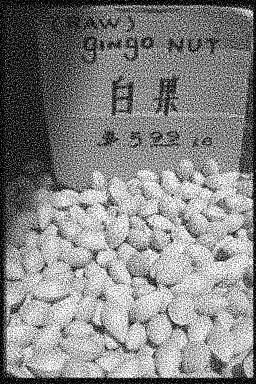 (RAW)
gingo NUT
白果
$ 5.99 LB